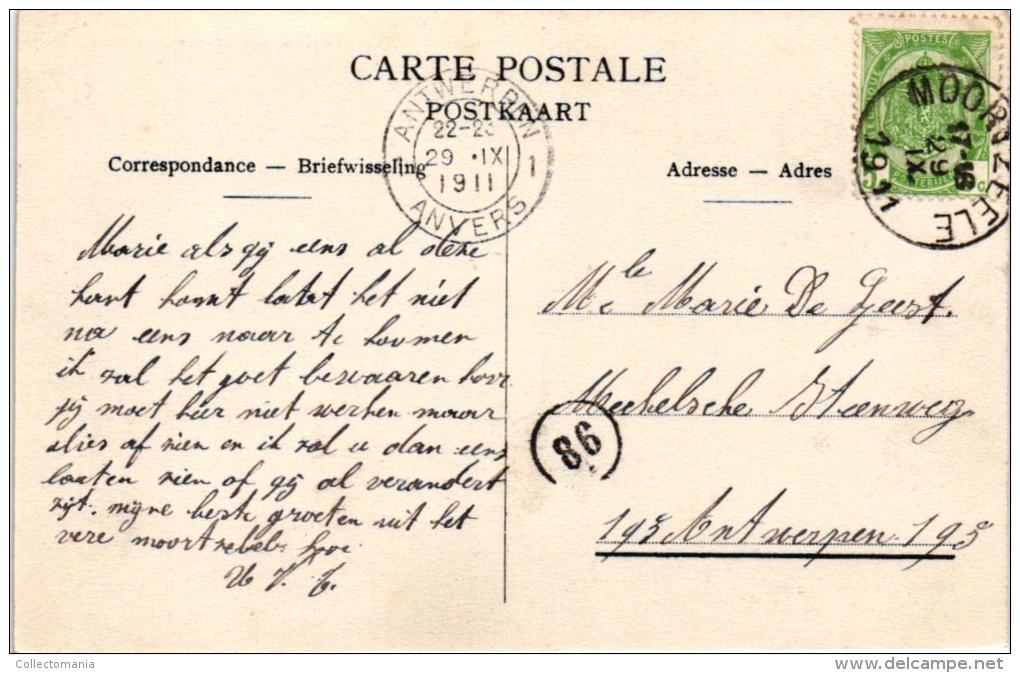 CARTE POSTALE
POSTKAART
ANTWERPEN 1
22-23
29 · IX
1911
ANVERS
Correspondance — Briefwisseling
Adresse — Adres
POSTES
MOORTZEELE
29
IX
1911
Marie als gij eens al deze
kant komt latet het niet
na eens naar te koomen
ik zal het goet bewaaren hoor
gij moet hier niet werken maar
alles af zien en ik zal u dan eens
laaten zien of gij al verandert
zijt. mijne beste groeten uit het
vere
M.le Marie De Geest.
Mechelsche Steenweg
195 Antwerpen 195
86
Collectomania
www.delcampe.net